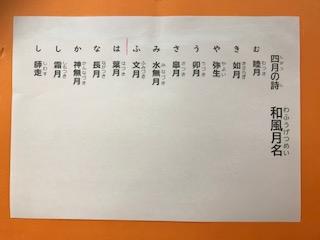 和風月名
わふうげつめい
四月の詩
む 睦月
むつき
き 如月
きさらぎ
や 弥生
やよい
う 卯月
うづき
さ 皐月
さつき
み 水無月
みなづき
ふ 文月
ふみづき
は 葉月
はづき
な 長月
ながつき
か 神無月
かんなづき
し 霜月
しもつき
し 師走
しわす